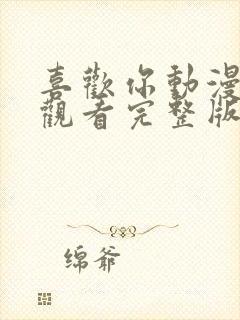 喜歡你動漫
觀看完整版
绵爷